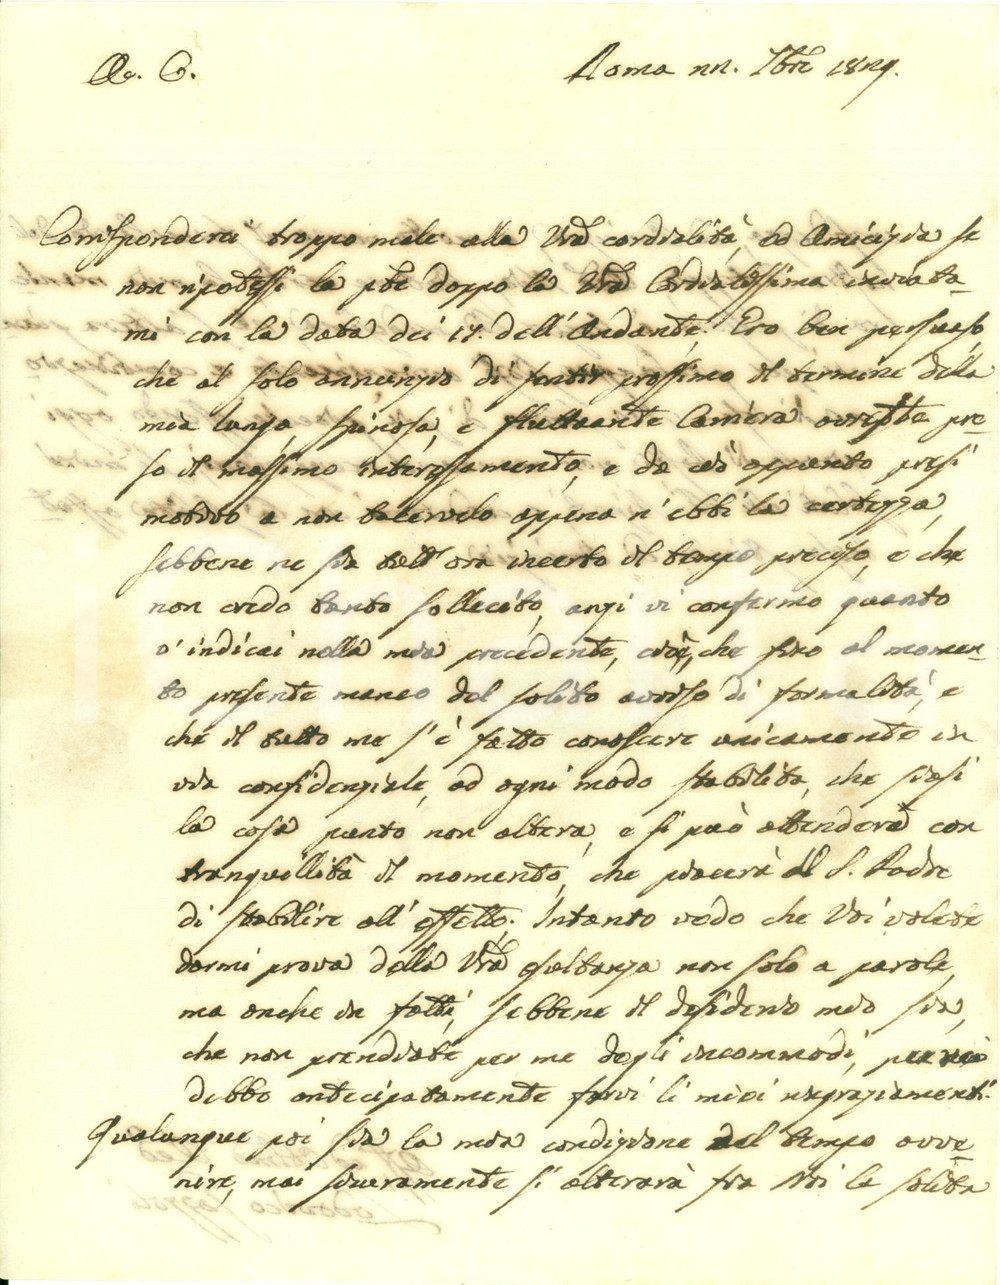 A. C. Roma 22. 7bre 1829.
Corrisponderei troppo male alla Vra cordialità, ed Amicizia se
non ripetessi la pte doppo la Vra Cordialissima inviata-
mi con la data dei 17. dell'Andante. Ero ben persuaso
che al solo annunzio di sentir prossimo il termine della
mia lunga, spinosa, e fluttuante Carriera avreste pre-
so il massimo interessamento, e da ciò appunto presi
motivo a non tacervelo appena n'ebbi la certezza,
sebbene ne sia tutt'ora incerto il tempo preciso, e che
non credo tanto sollecito, anzi vi confermo quanto
v'indicai nella mia precedente, cioè, che fino al momen-
to presente manco del solito avviso di formalità, e
che il tutto me s'è fatto conoscere unicamente in
via confidenziale, ad ogni modo stabilita, che siasi
la cosa punto non altera, e si può attendere con
tranquillità il momento, che piacerà al S. Padre
di stabilire all'effetto. Intanto vedo che Voi volete
darmi prova della Vra esultanza non solo a parole,
ma anche in fatti, sebbene il desiderio mio sia,
che non prendiate per me degli incommodi, perciò
debbo antecipatamente farvi li miei ringraziamenti.
Qualunque poi sia la mia condizione nel tempo avve-
nire, mai sicuramente si altererà fra Noi la solita